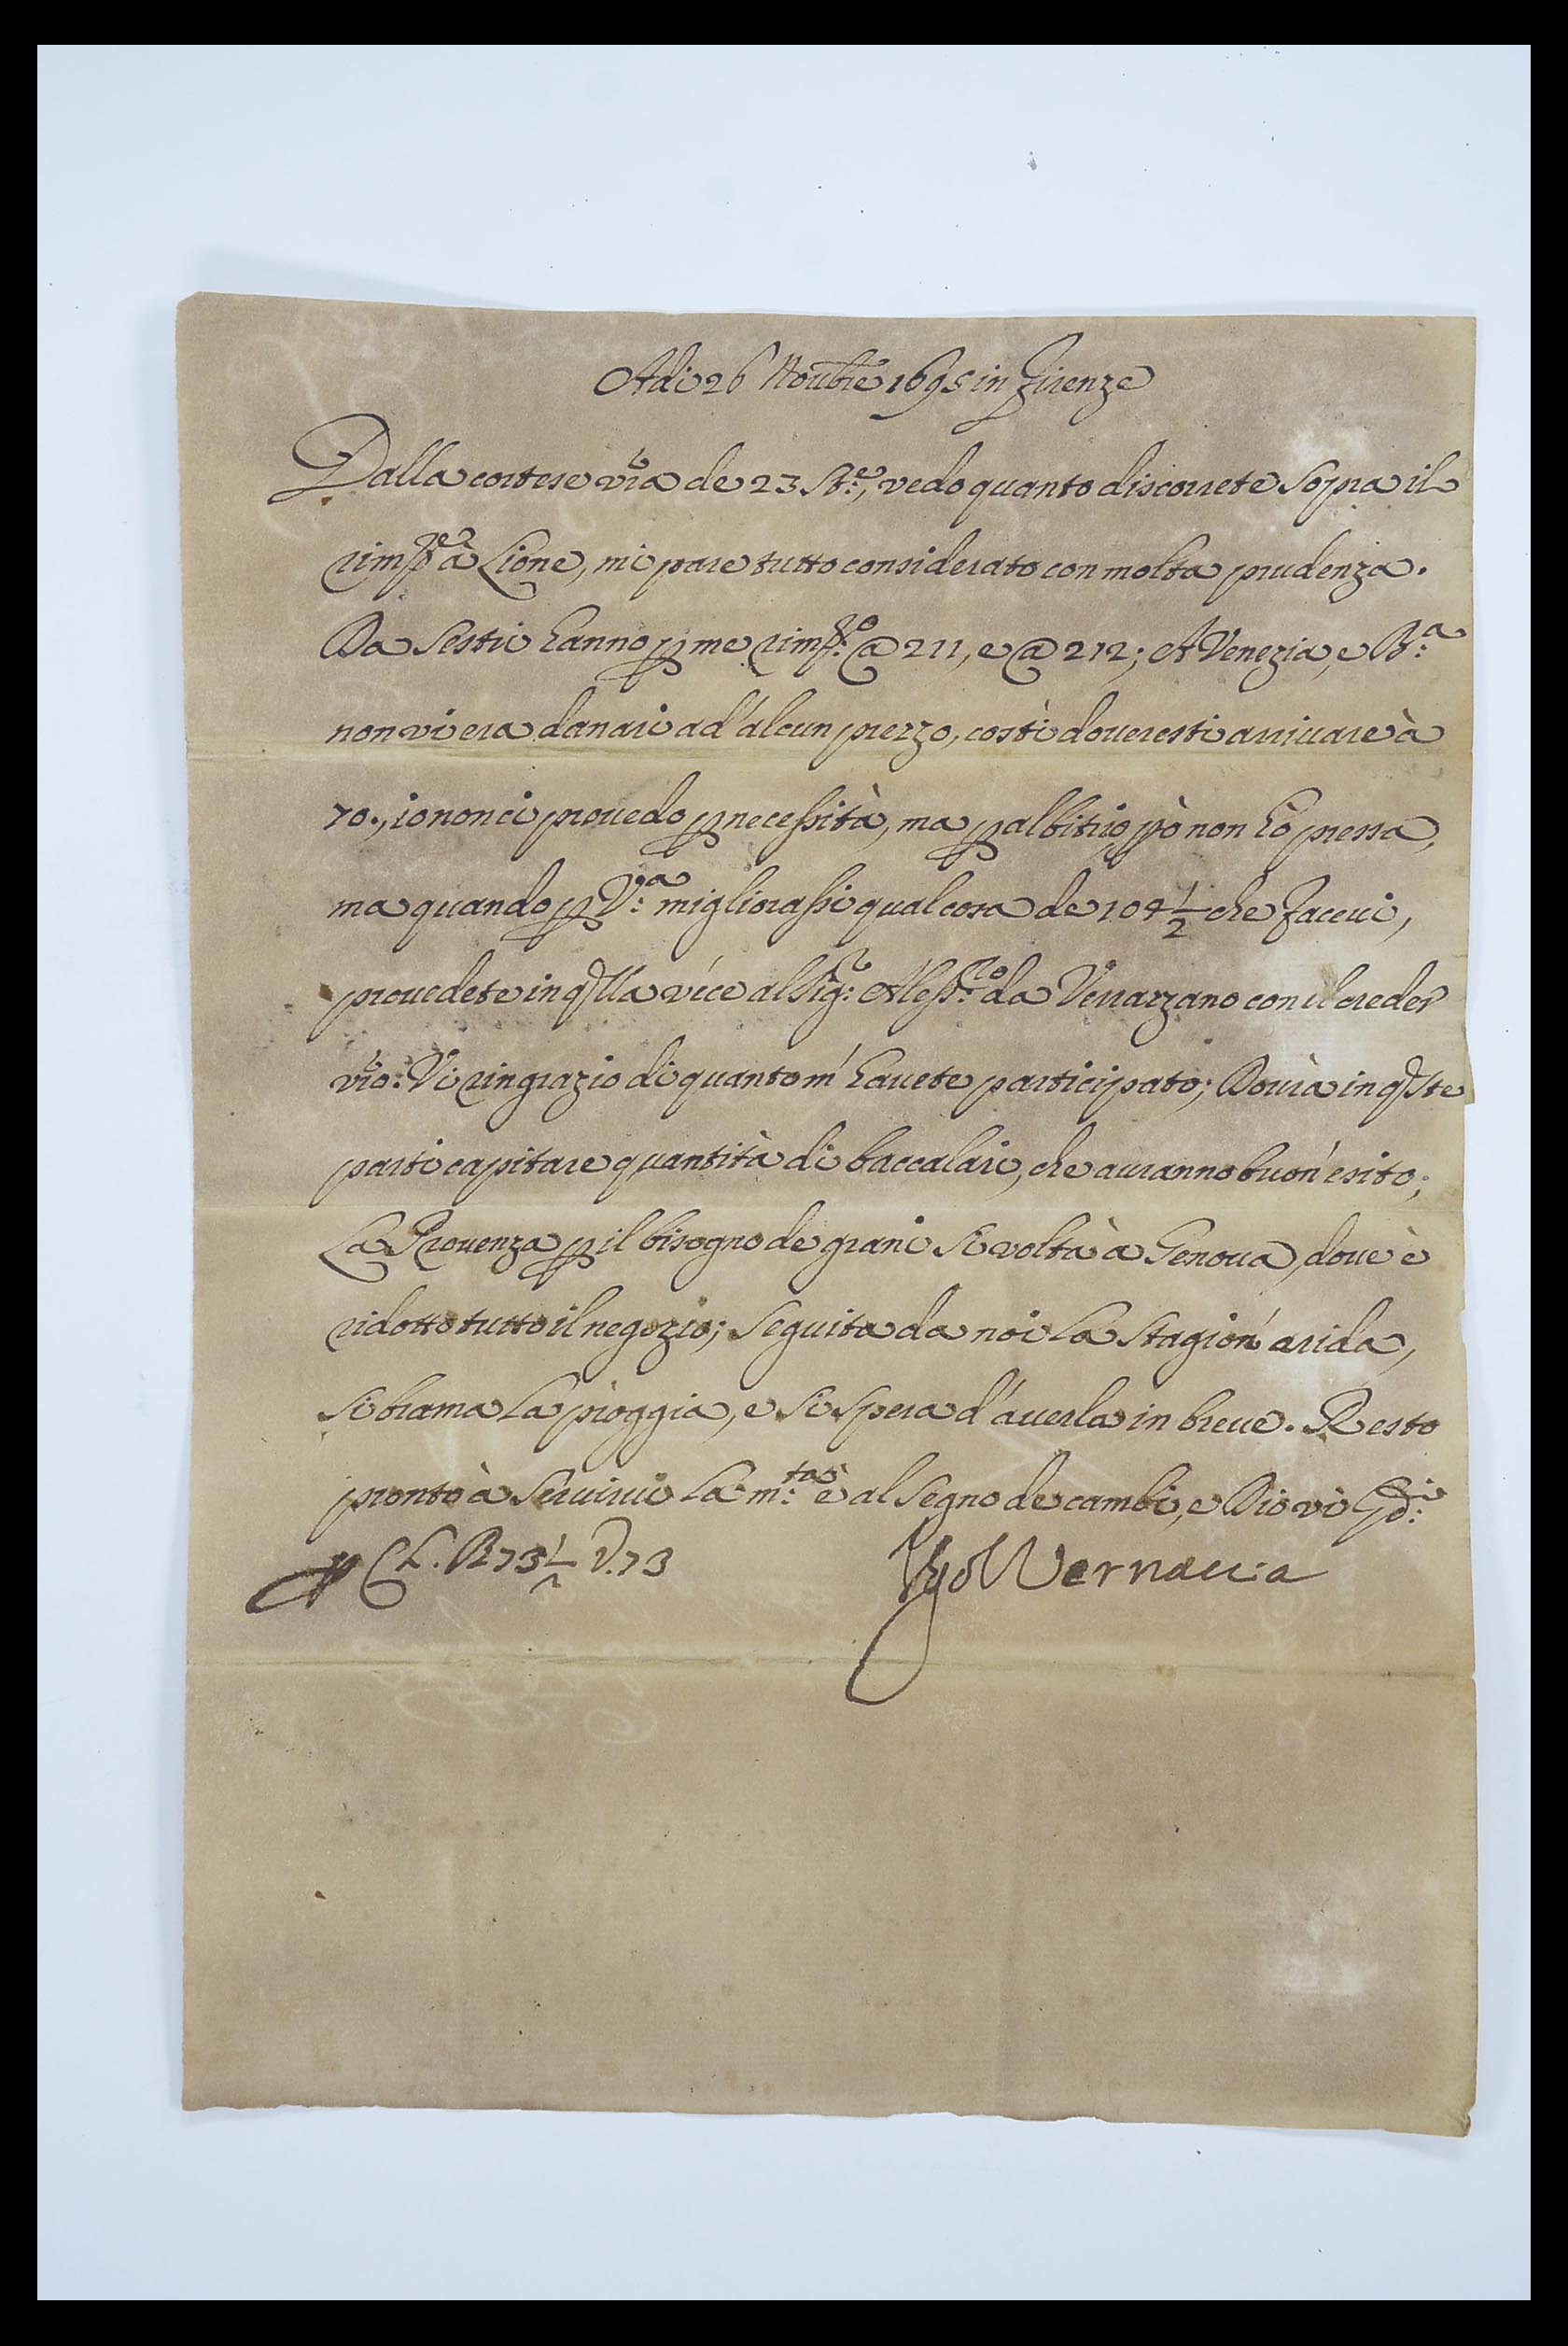 Adi 26 Noubre 1695 in Firenze
Dalla cortese vra de 23 st.e, vedo quanto discorrete sopra il
à Lione, mi pare tutto considerato con molta prudenza.
Da Sestri hanno p me @ 211, e @ 212; A Venezia, e B:a
non vi era danari ad'alcun prezzo, costì doueresti arriuare à
70., io non ci prouedo p necessità, ma p albitrio, pò non hò pressa,
ma quando p V:a migliorassi qualcosa de 104 1/2 che faceui,
prouedete in qlla véce al Sigr: Aless:ro da Verrazzano con il creder
vro: Vi ringrazio di quanto m'hauete participato; Dourà in qste
parti capitare quantità di baccalari, che auranno buon'esito;
La Prouenza p il bisogno de grani si voltà à Genoua, doue è
ridotto tutto il negozio; seguita da noi la stagion'arida,
si brama la pioggia, e si spera d'auerla in breue. Resto
pronto à seruirui la m:ta è al segno de cambi, e Dio vi Gdi:
L. B 73 1/2 V. 73
Ugo Vernaccia